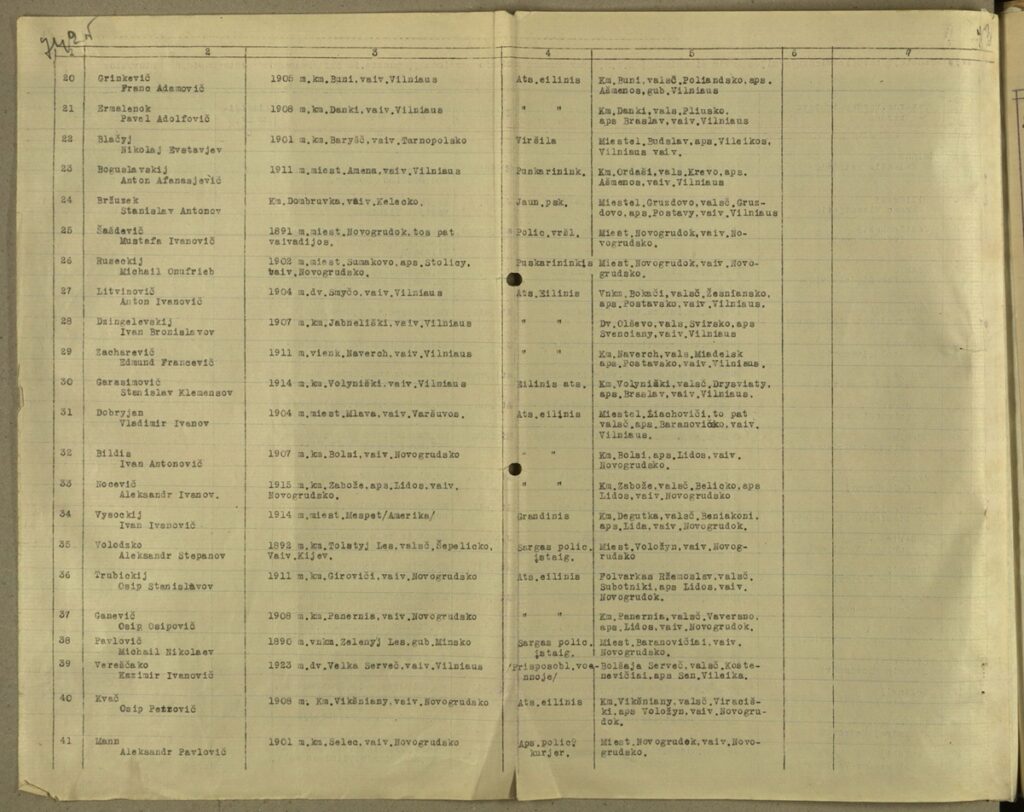 2 3 4 5 6 7
20 Grinkevič 1905 m.km.Buni,vaiv.Vilniaus Ats.eilinis Km.Buni,valsč.Poliandsko,aps.
Franc Adamovič Ašmenos,gub.Vilniaus
21 Ermalenok 1908 m.km.Danki,vaiv.Vilniaus " " Km.Danki,vals.Pliusko,
Pavel Adolfovič aps Braslav,vaiv.Vilniaus
22 Blačyj 1901 m.km.Baryšč,vaiv.Tarnopolsko Viršila Miestel.Budslav,aps.Vileikos,
Nikolaj Evstavjev Vilniaus vaiv.
23 Boguslavskij 1911 m.miest.Amena,vaiv.Vilniaus Puskarinink. Km.Ordaši,vals.Krevo,aps.
Anton Afanasjevič Ašmenos,vaiv.Vilniaus
24 Bržuzek Km.Dombruvka,vaiv.Kelecko. Jaun.psk. Miestel.Gruzdovo,valsč.Gruz-
Stanislav Antonov dovo,aps.Postavy,vaiv.Vilniaus
25 Šašdevič 1891 m.miest.Novogrudok,tos pat Polic.vršl. Miest.Novogrudok,vaiv.No-
Mustafa Ivanovič vaivadijos. vogrudsko.
26 Ruseckij 1902 m.miest.Sumakovo,aps.Stolicy. Puskarininkis Miest.Novogrudok,vaiv.Novo-
Michail Onufrieb vaiv.Novogrudsko. grudsko.
27 Litvinovič 1904 m.dv.Smyčo,vaiv.Vilniaus Ats.Eilinis Vnkm.Bokači,valsč.Žesniansko,
Anton Ivanovič aps.Postavsko,vaiv.Vilniaus.
28 Dzingelevskij 1907 m.km.Jabneliški,vaiv.Vilniaus " " Dv.Olševo,vals.Svirsko,aps
Ivan Bronislavov Svenciany,vaiv.Vilniaus
29 Zacharevič 1911 m.vienk.Naverch,vaiv.Vilniaus " " Km.Naverch,vals.Miadelsk
Edmund Francevič aps.Postavsko,vaiv.Vilniaus.
30 Garasimovič 1914 m.km.Volyniški,vaiv.Vilniaus Eilinis ats. Km.Volyniški,valsč.Drysviaty,
Stanislav Klemensov aps.Braslav,vaiv.Vilniaus.
31 Dobryjan 1904 m.miest.Mlava,vaiv.Varšuvos. Ats.eilinis Miestel.Žiachoviči,to pat
Vladimir Ivanov valsč.aps.Baranovičko,vaiv.
Vilniaus.
32 Bildis 1907 m.km.Bolsi,vaiv.Novogrudsko " " Km.Bolsi,aps.Lidos,vaiv.
Ivan Antonovič Novogrudsko.
33 Nocevič 1915 m.km.Zabože,aps.Lidos,vaiv. " " Km.Zabože,valsč.Belicko,aps
Aleksandr Ivanov. Novogrudsko. Lidos,vaiv.Novogrudsko
34 Vysockij 1914 m.miest.Maspet/Amerika/ Grandinis Km.Degutka,valsč.Beniakoni,
Ivan Ivanovič aps.Lida,vaiv.Novogrudok.
35 Volodzko 1892 m.km.Tolstyj Les,valsč.Šepelicko, Sargas polic. Miest.Voložyn,vaiv.Novog-
Aleksandr Stepanov Vaiv.Kijev. įstaig. rudsko
36 Trubickij 1911 m.km.Giroviči,vaiv.Novogrudsko Ats.eilinis Folvarkas Ržemoslav,valsč.
Osip Stanislavov Subotniki,aps Lidos,vaiv.
Novogrudok.
37 Ganevič 1908 m.km.Panernia,vaiv.Novogrudsko " " Km.Panernia,valsč.Vaversno,
Osip Osipovič aps.Lidos,vaiv.Novogrudok.
38 Pavlovič 1890 m.vnkm.Zelenyj Les,gub.Minsko Sargas polic. Miest.Baranovičiai,vaiv.
Michail Nikolaev įstaig. Novogrudsko.
39 Vereščako 1923 m.dv.Velka Serveč,vaiv.Vilniaus /Prisposobl.voe- Bolšaja Serveč,valsč.Koste-
Kazimir Ivanovič nnoje/ nevičiai,aps Sen.Vileika.
40 Kvač 1908 m. Km.Vikšniany,vaiv.Novogrudsko Ats.eilinis Km.Vikšniany,valsč.Viraciš-
Osip Petrovič ki,aps Voložyn,vaiv.Novogru-
dok.
41 Mann 1901 m.km.Selec,vaiv.Novogrudsko Aps.policy Miest.Novogrudok,vaiv.Novo-
Aleksandr Pavlovič kurjer. grudsko.